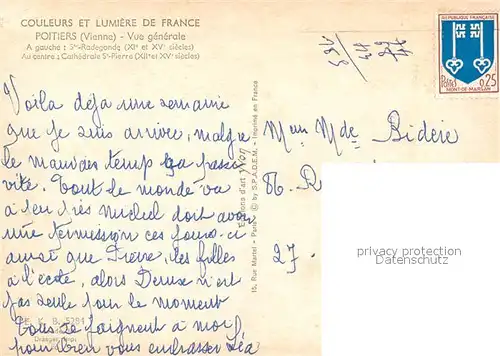 COULEURS ET LUMIÈRE DE FRANCE
POITIERS (Vienne) - Vue générale
A gauche : Ste-Radegonde (XIe et XVe siècles)
Au centre : Cathédrale St-Pierre (XIIe et XVe siècles)
RÉPUBLIQUE FRANÇAISE
Postes 0,25
MONT-DE-MARSAN
Voila déja une semaine
que je suis arrivé, malgré
le mauvais temps ça passe
vite. Tout le monde va
a peu près Michel doit avoir
une permission ces jours ci
ainsi que Pierre, les filles
a l'école, alors Denise n'est
pas seule pour le moment
Tous se joignent a moi
pour bien vous embrasser Léa
Mm Mde Bideie
86. R
27.
Editions d'art yvon
15, Rue Martel - Paris © by S.P.A.D.E.M. - Imprimé en France
privacy protection
Datenschutz